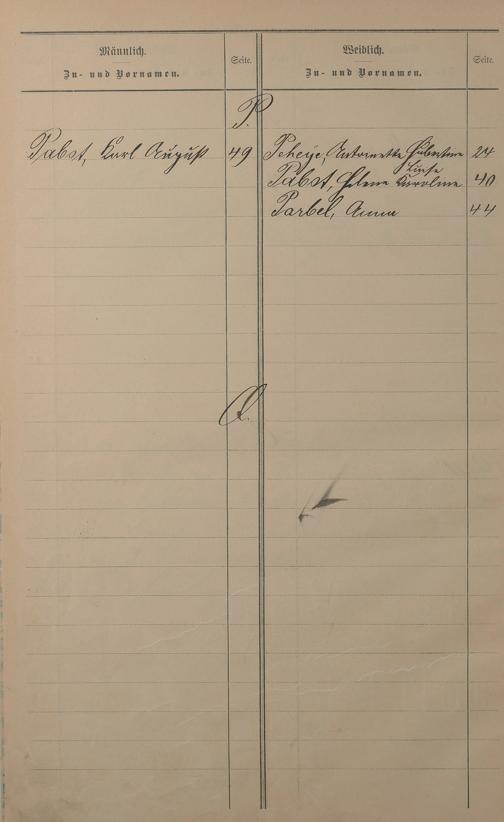 Männlich.
Zu- und Vornamen.
Seite.
Weiblich.
Zu- und Vornamen.
Seite.
P.
Pabst, Karl August 49
Antoinette Hubertine 24
Pabst, Helene Karoline Luise 40
Parbel, Anna 44
Q.